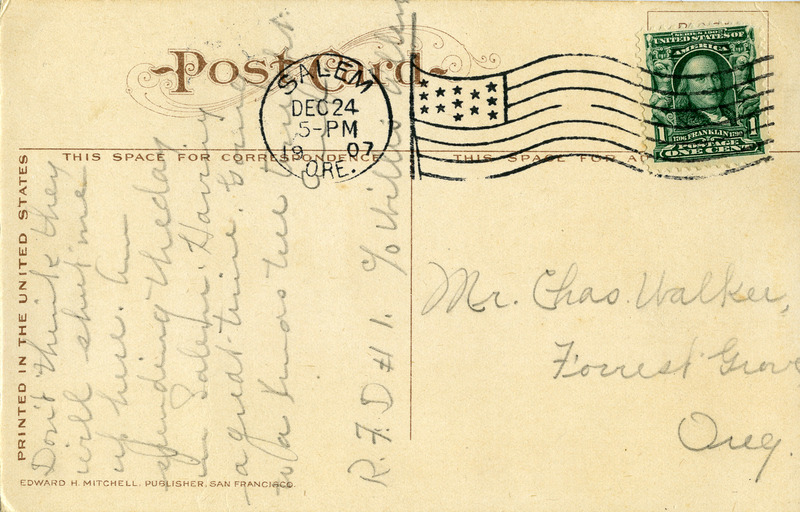 Post Card
SALEM
DEC 24
5-PM
19 07
ORE.
SERIES 1902
UNITED STATES OF
AMERICA
1 1706 FRANKLIN 1790 1
POSTAGE
ONE CENT
THIS SPACE FOR CORRESPONDENCE
THIS SPACE FOR
PRINTED IN THE UNITED STATES
Don't think they
will shut me
up here. Am
spending the day
in Salem. Having
a great time. Going
to a Xmas tree tonight.
R.F.D #1. c/o Willis
Mr. Chas. Walker,
Forrest Grov
Oreg.
EDWARD H. MITCHELL, PUBLISHER, SAN FRANCISCO.